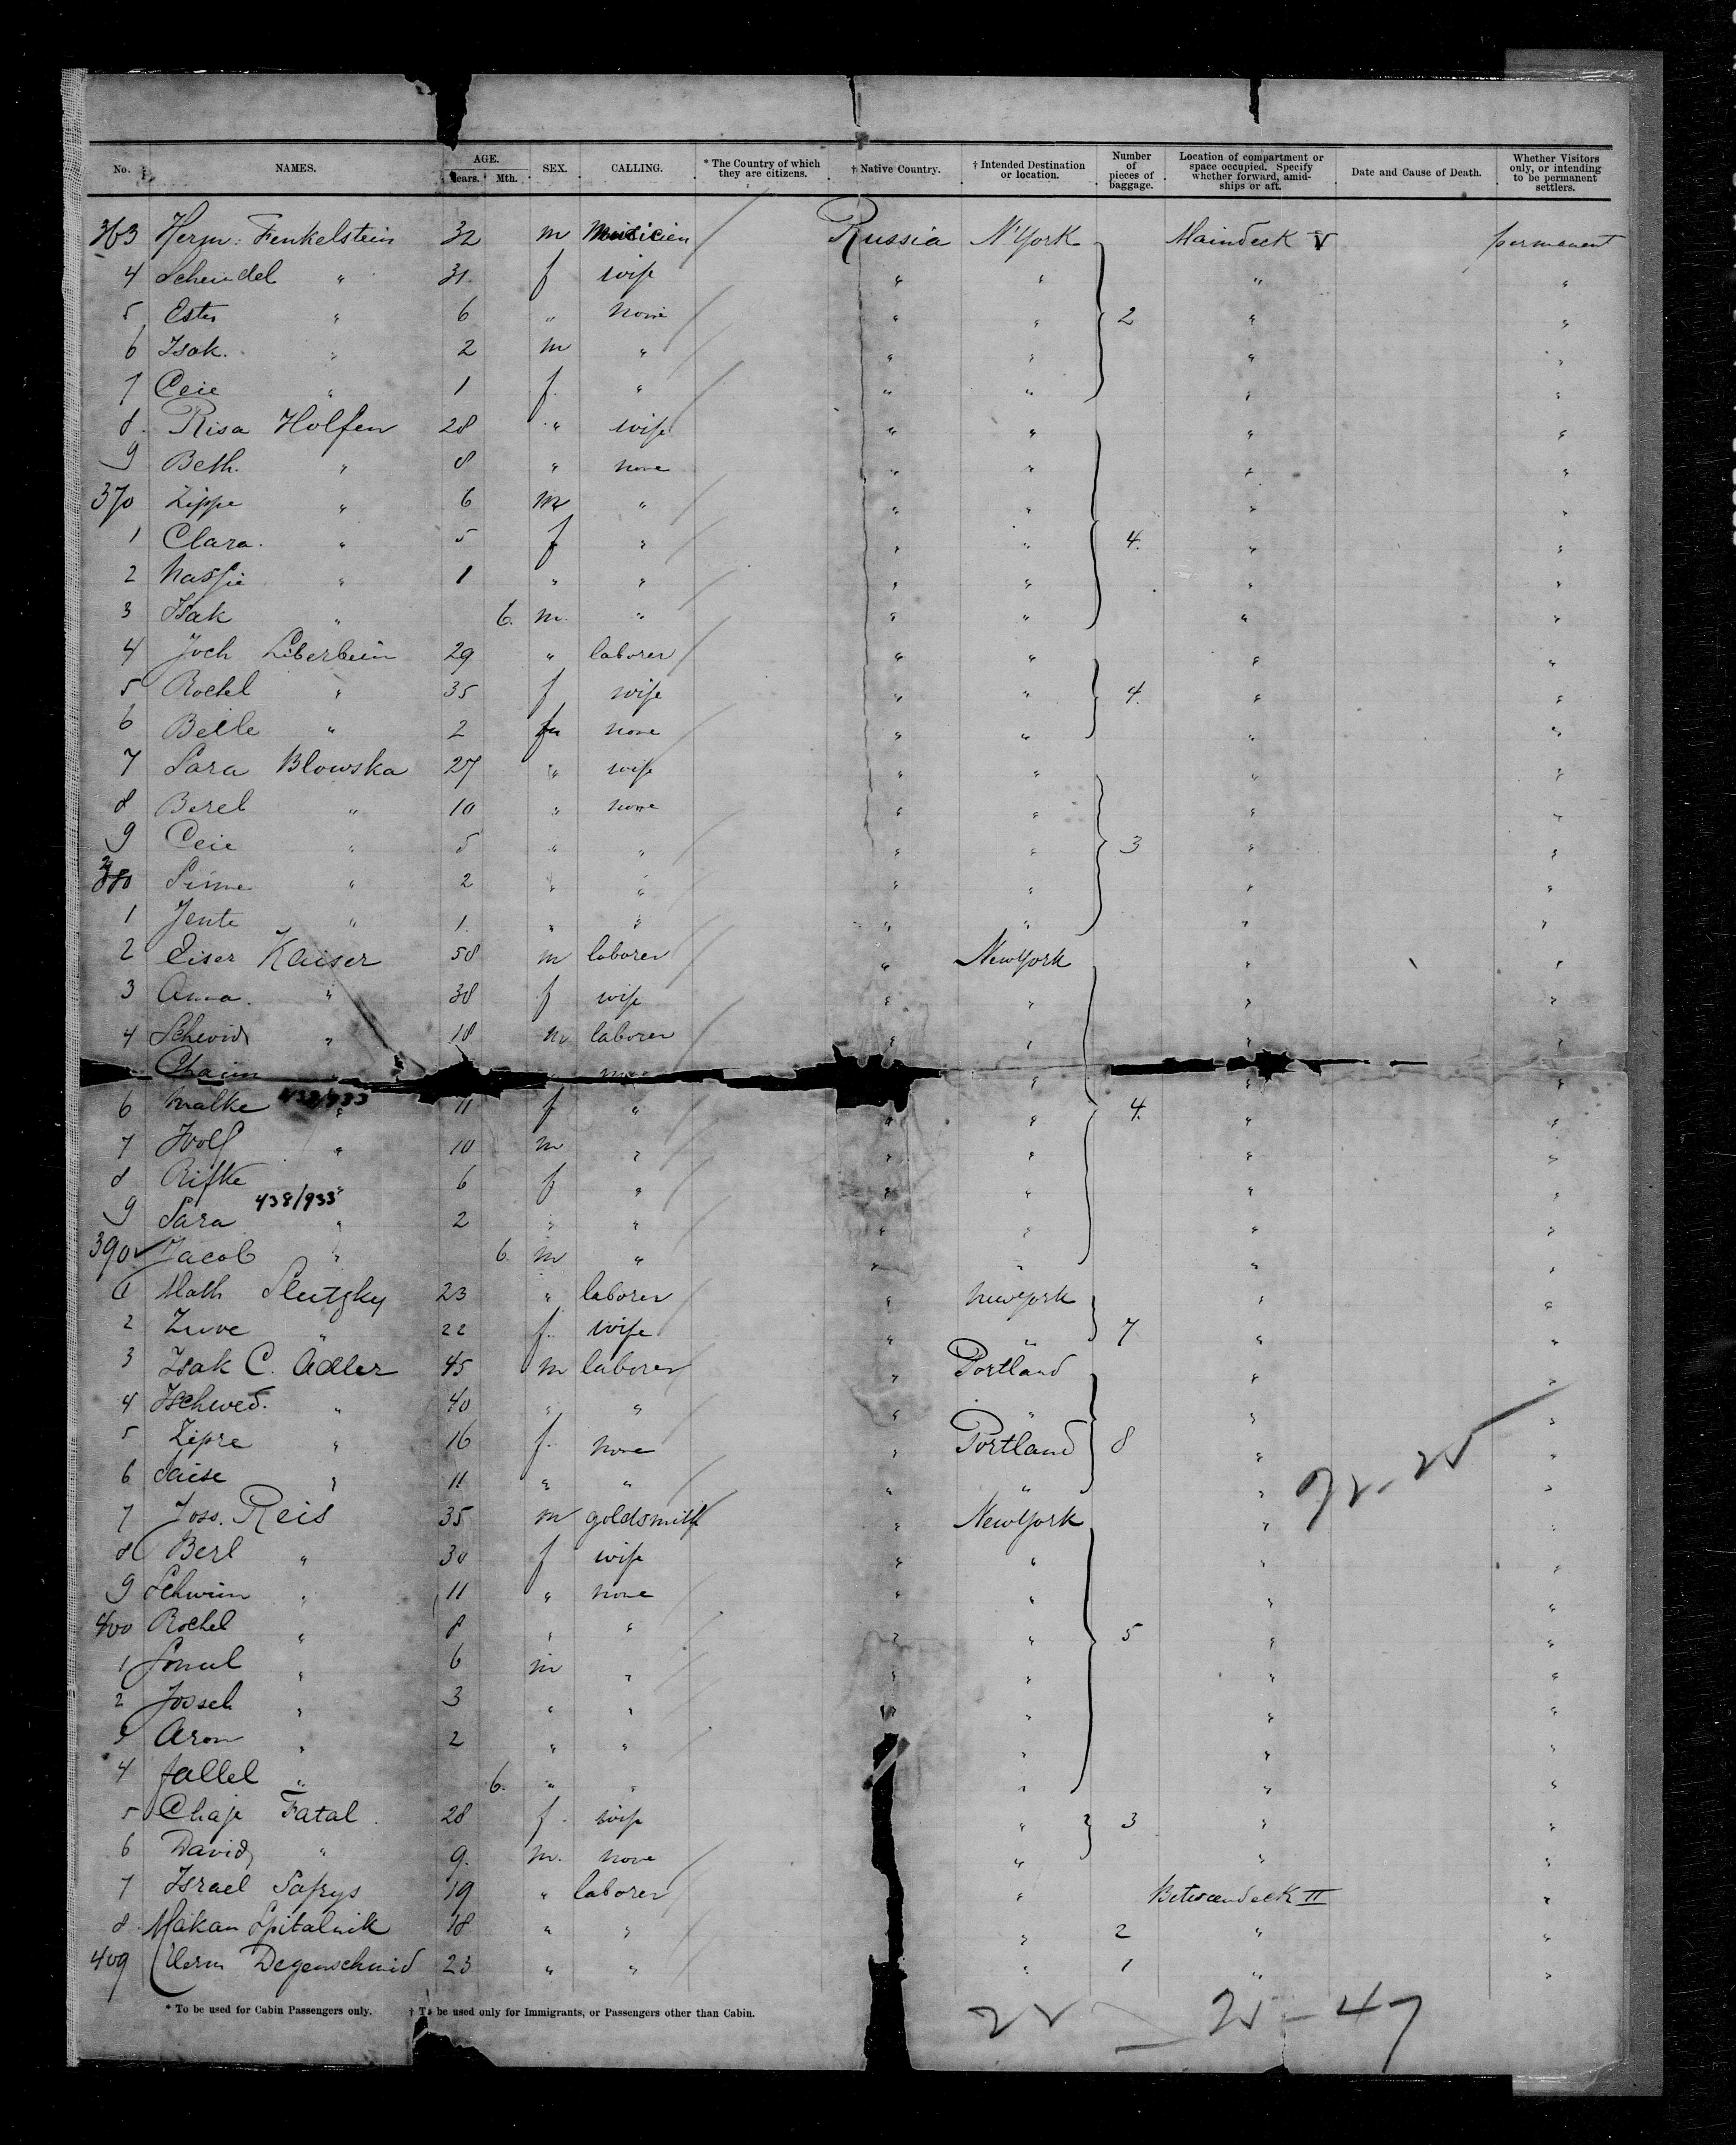 No. NAMES. AGE. Years. Mth. SEX. CALLING. * The Country of which they are citizens. † Native Country. † Intended Destination or location. Number of pieces of baggage. Location of compartment or space occupied. Specify whether forward, amidships or aft. Date and Cause of Death. Whether Visitors only, or intending to be permanent settlers.
363 Herm: Fenkelstein 32 m Musicien Russia N'York Maindeck V permanent
4 Scheindel " 31 f wife " " " "
5 Ester " 6 " none " " 2 " "
6 Isak. " 2 m " " " " "
7 Ceie " 1 f. " " " " "
8. Risa Holfen 28 " wife " " " "
9 Beth. " 8 " none " " " "
370 Zippe " 6 m " " " " "
1 Clara. " 5 f " " " 4. " "
2 " 1 " " " " " "
3 Isak " 6. m. " " " " "
4 Joch Liberbein 29 " laborer " " " "
5 Rochel " 35 f wife " " 4. " "
6 Beile " 2 none " " " "
7 Sara Blowska 27 " wife " " " "
8 Berel " 10 " none " " " "
9 Ceie " 5 " " " " 3 " "
380 Sime " 2 " " " " " "
1 Jente " 1. " " " " " "
2 Eiser Kaiser 58 m laborer " NewYork " "
3 Anna. " 38 f wife " " " "
4 " 18 m laborer " " " "
Chaim " " "
6 Malke " 11 f " " " 4. " "
7 Wolf " 10 m " " " " "
8 Rifke " 6 f " " " " "
438/933
9 Sara " 2 " " " " " "
390 Jacob " 6. m " " " " "
1 Math Slutzky 23 " laborer " NewYork " "
2 " 22 f. wife " " 7 " "
3 Isak C. Adler 45 m laborer " Portland " "
4 " 40 " " " " " "
5 Zipre " 16 f. none " Portland 8 " "
6 " 11 " " " " " "
7 Joss. Reis 35 m goldsmith " NewYork " "
8 Berl " 30 f wife " " " "
9 " 11 " none " " " "
400 Rochel " 8 " " " " 5 " "
1 " 6 m " " " " "
2 Jossel " 3 " " " " " "
3 Aron " 2 " " " " "
4 " 6. " " " " "
5 Chaje Fatal. 28 f. wife " 3 " "
6 David " 9. m. none " " "
7 Israel 19 " laborer " Betweendeck II "
8. Makan Spitalnik 18 " " " 2 " "
409 Herm Degenschmid 23 " " " 1 " "
* To be used for Cabin Passengers only. † To be used only for Immigrants, or Passengers other than Cabin.